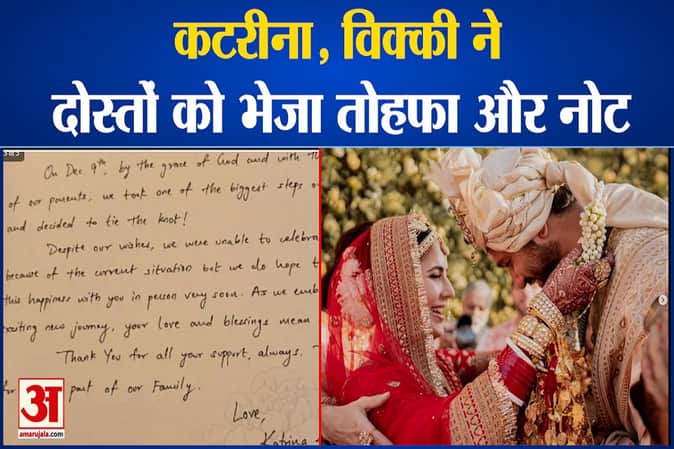 कटरीना, विक्की ने
दोस्तों को भेजा तोहफा और नोट
On Dec 9th, by the grace of God and with
of our parents, we took one of the biggest steps
and decided to tie the knot!
Despite our wishes, we were unable to
because of the current situation but we do hope
this happiness with you in person very soon. As we
exciting new journey, your love and blessings mean
Thank You for all your support, always.
part of our Family.
Love,
Katrina
अ
amarujala.com